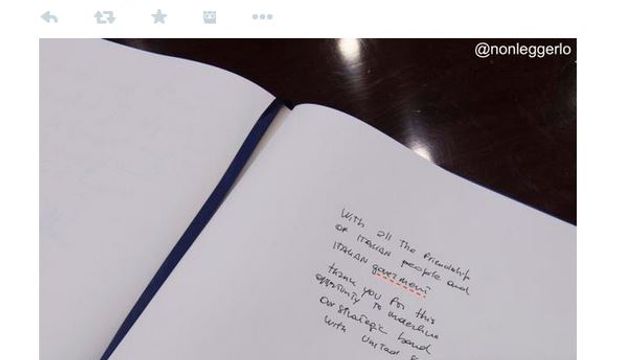 @nonleggerlo
With all the friendship
of ITALIAN people and
ITALIAN goverment
thank you for this
opportunity to
our strategic bond
with United